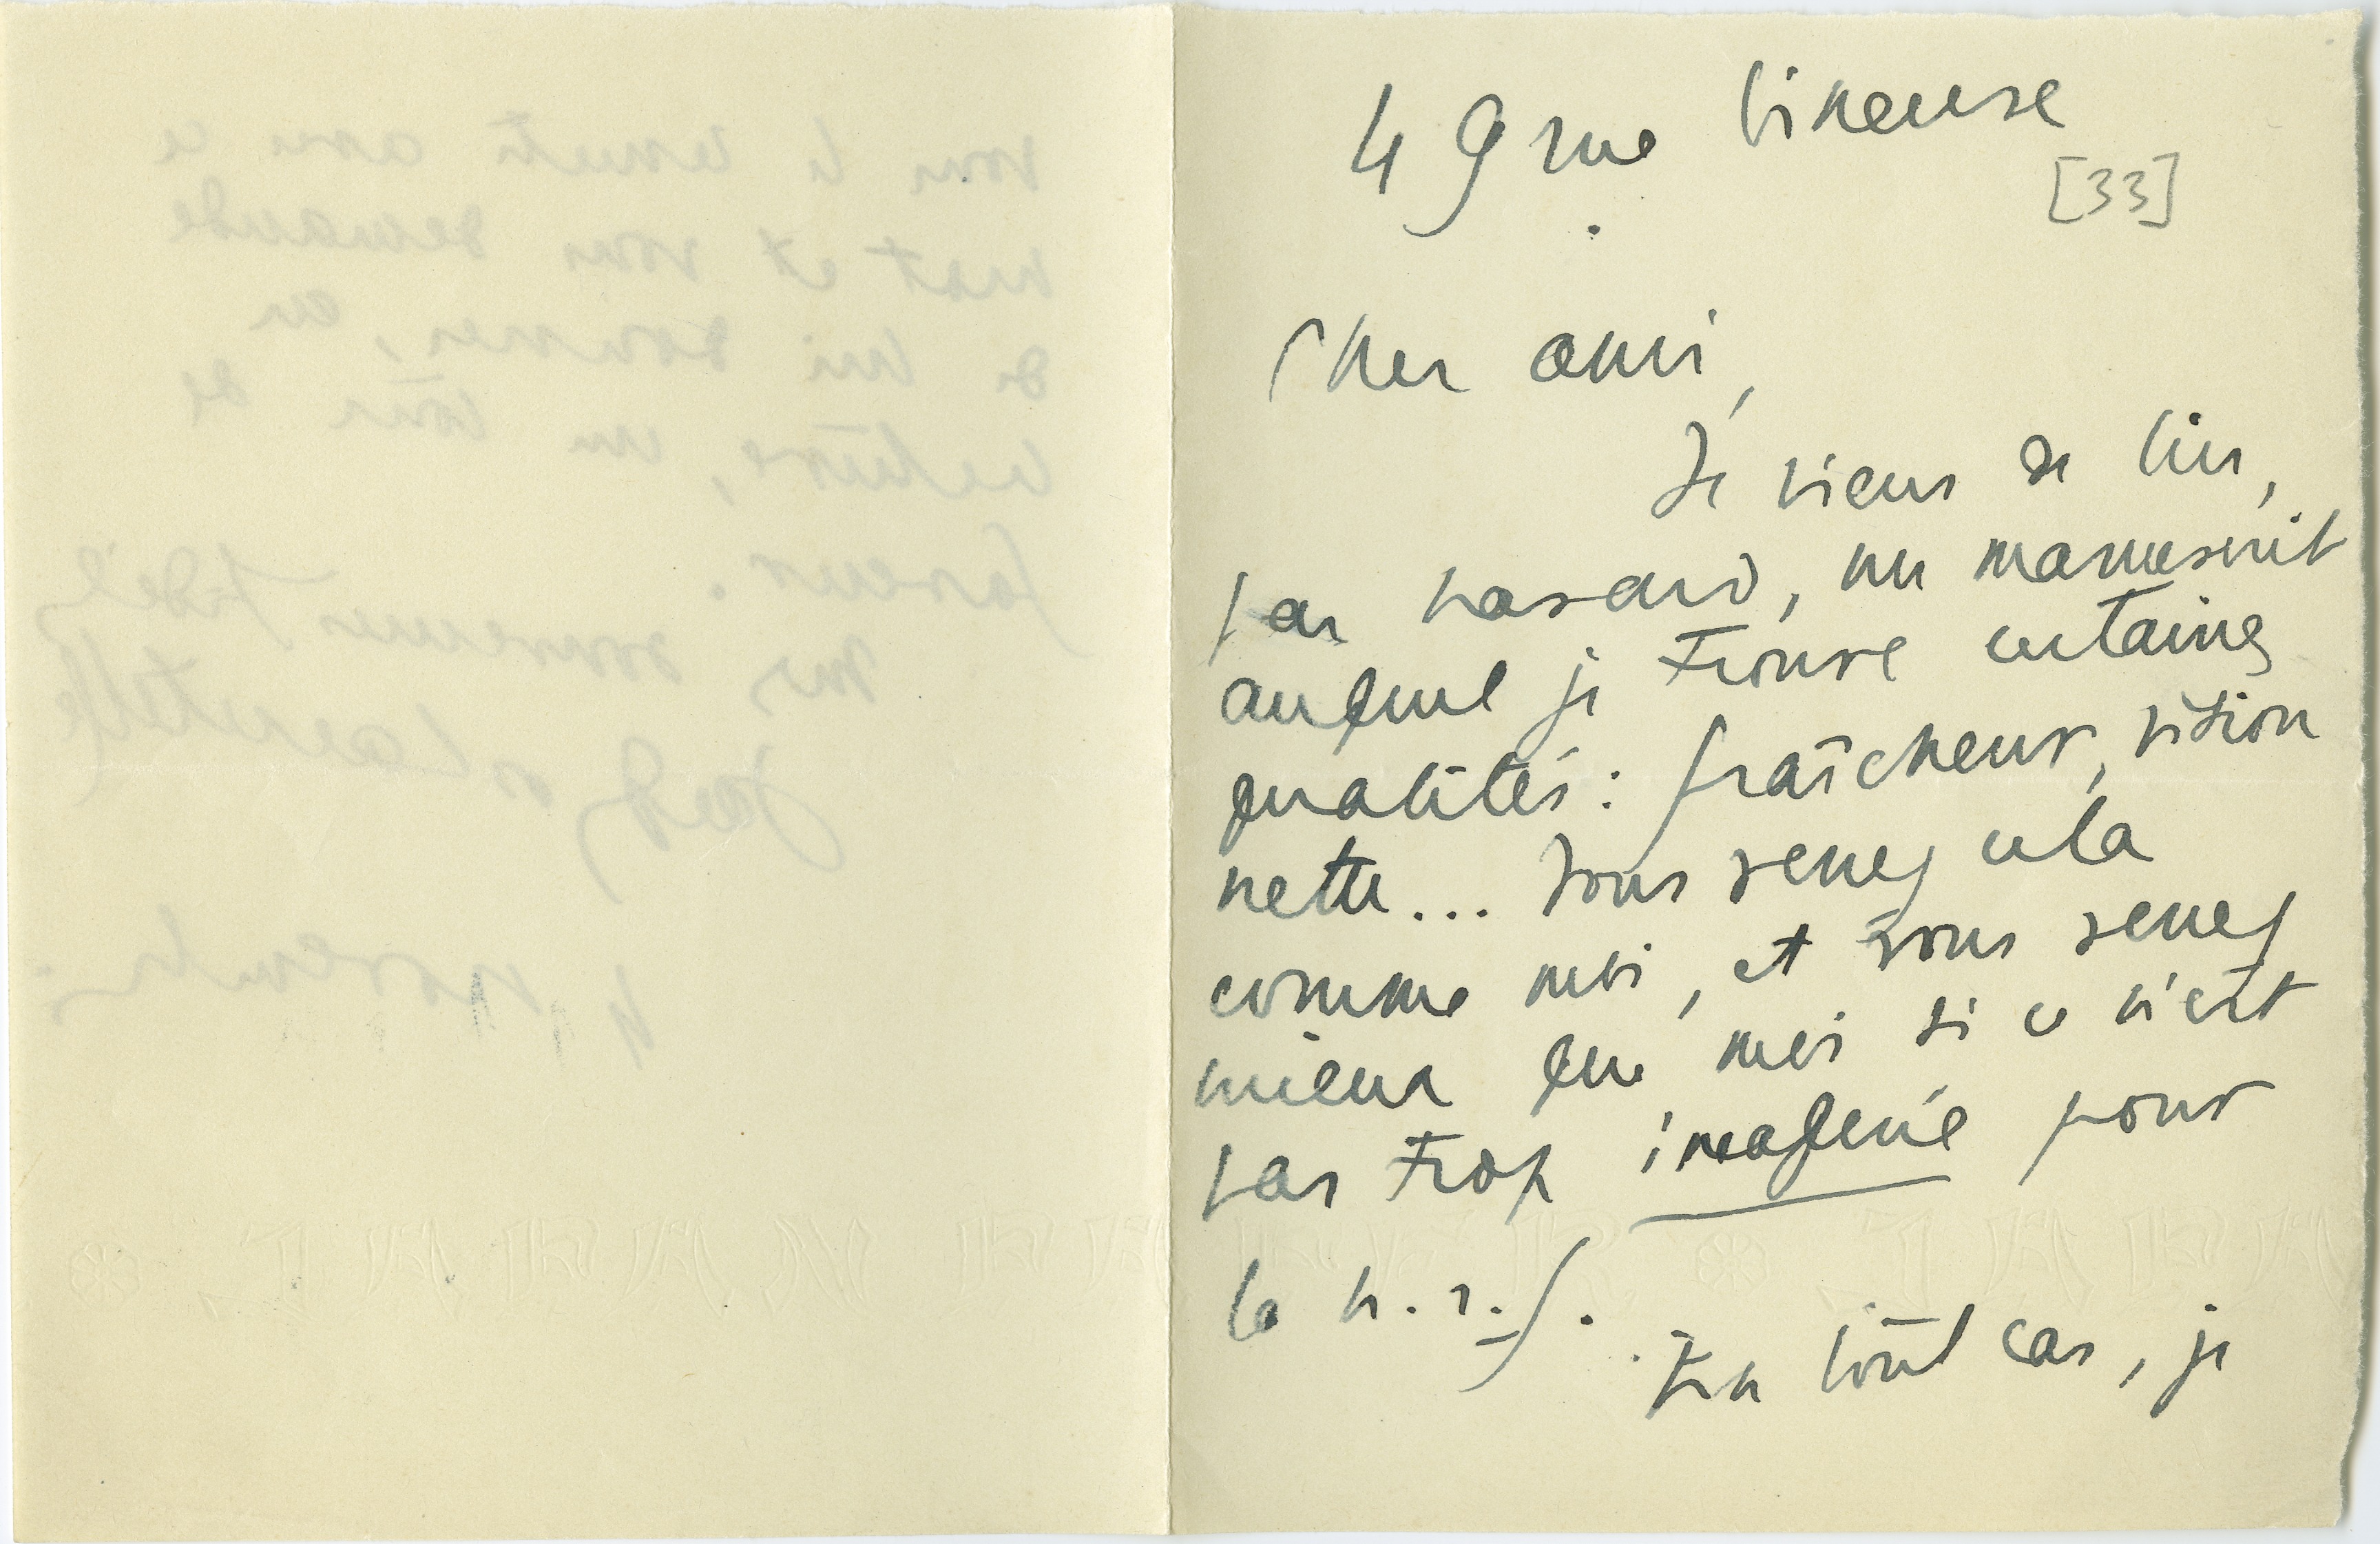 49 rue Vineuse
[33]
Cher ami,
Je viens de lire,
par hasard, un manuscrit
auquel je trouve certaines
qualités : fraîcheur, vision
nette... Vous verrez cela
comme moi, et vous verrez
mieux que moi si ce n'est
pas trop imagerie pour
la n.r.f.
En tout cas, je